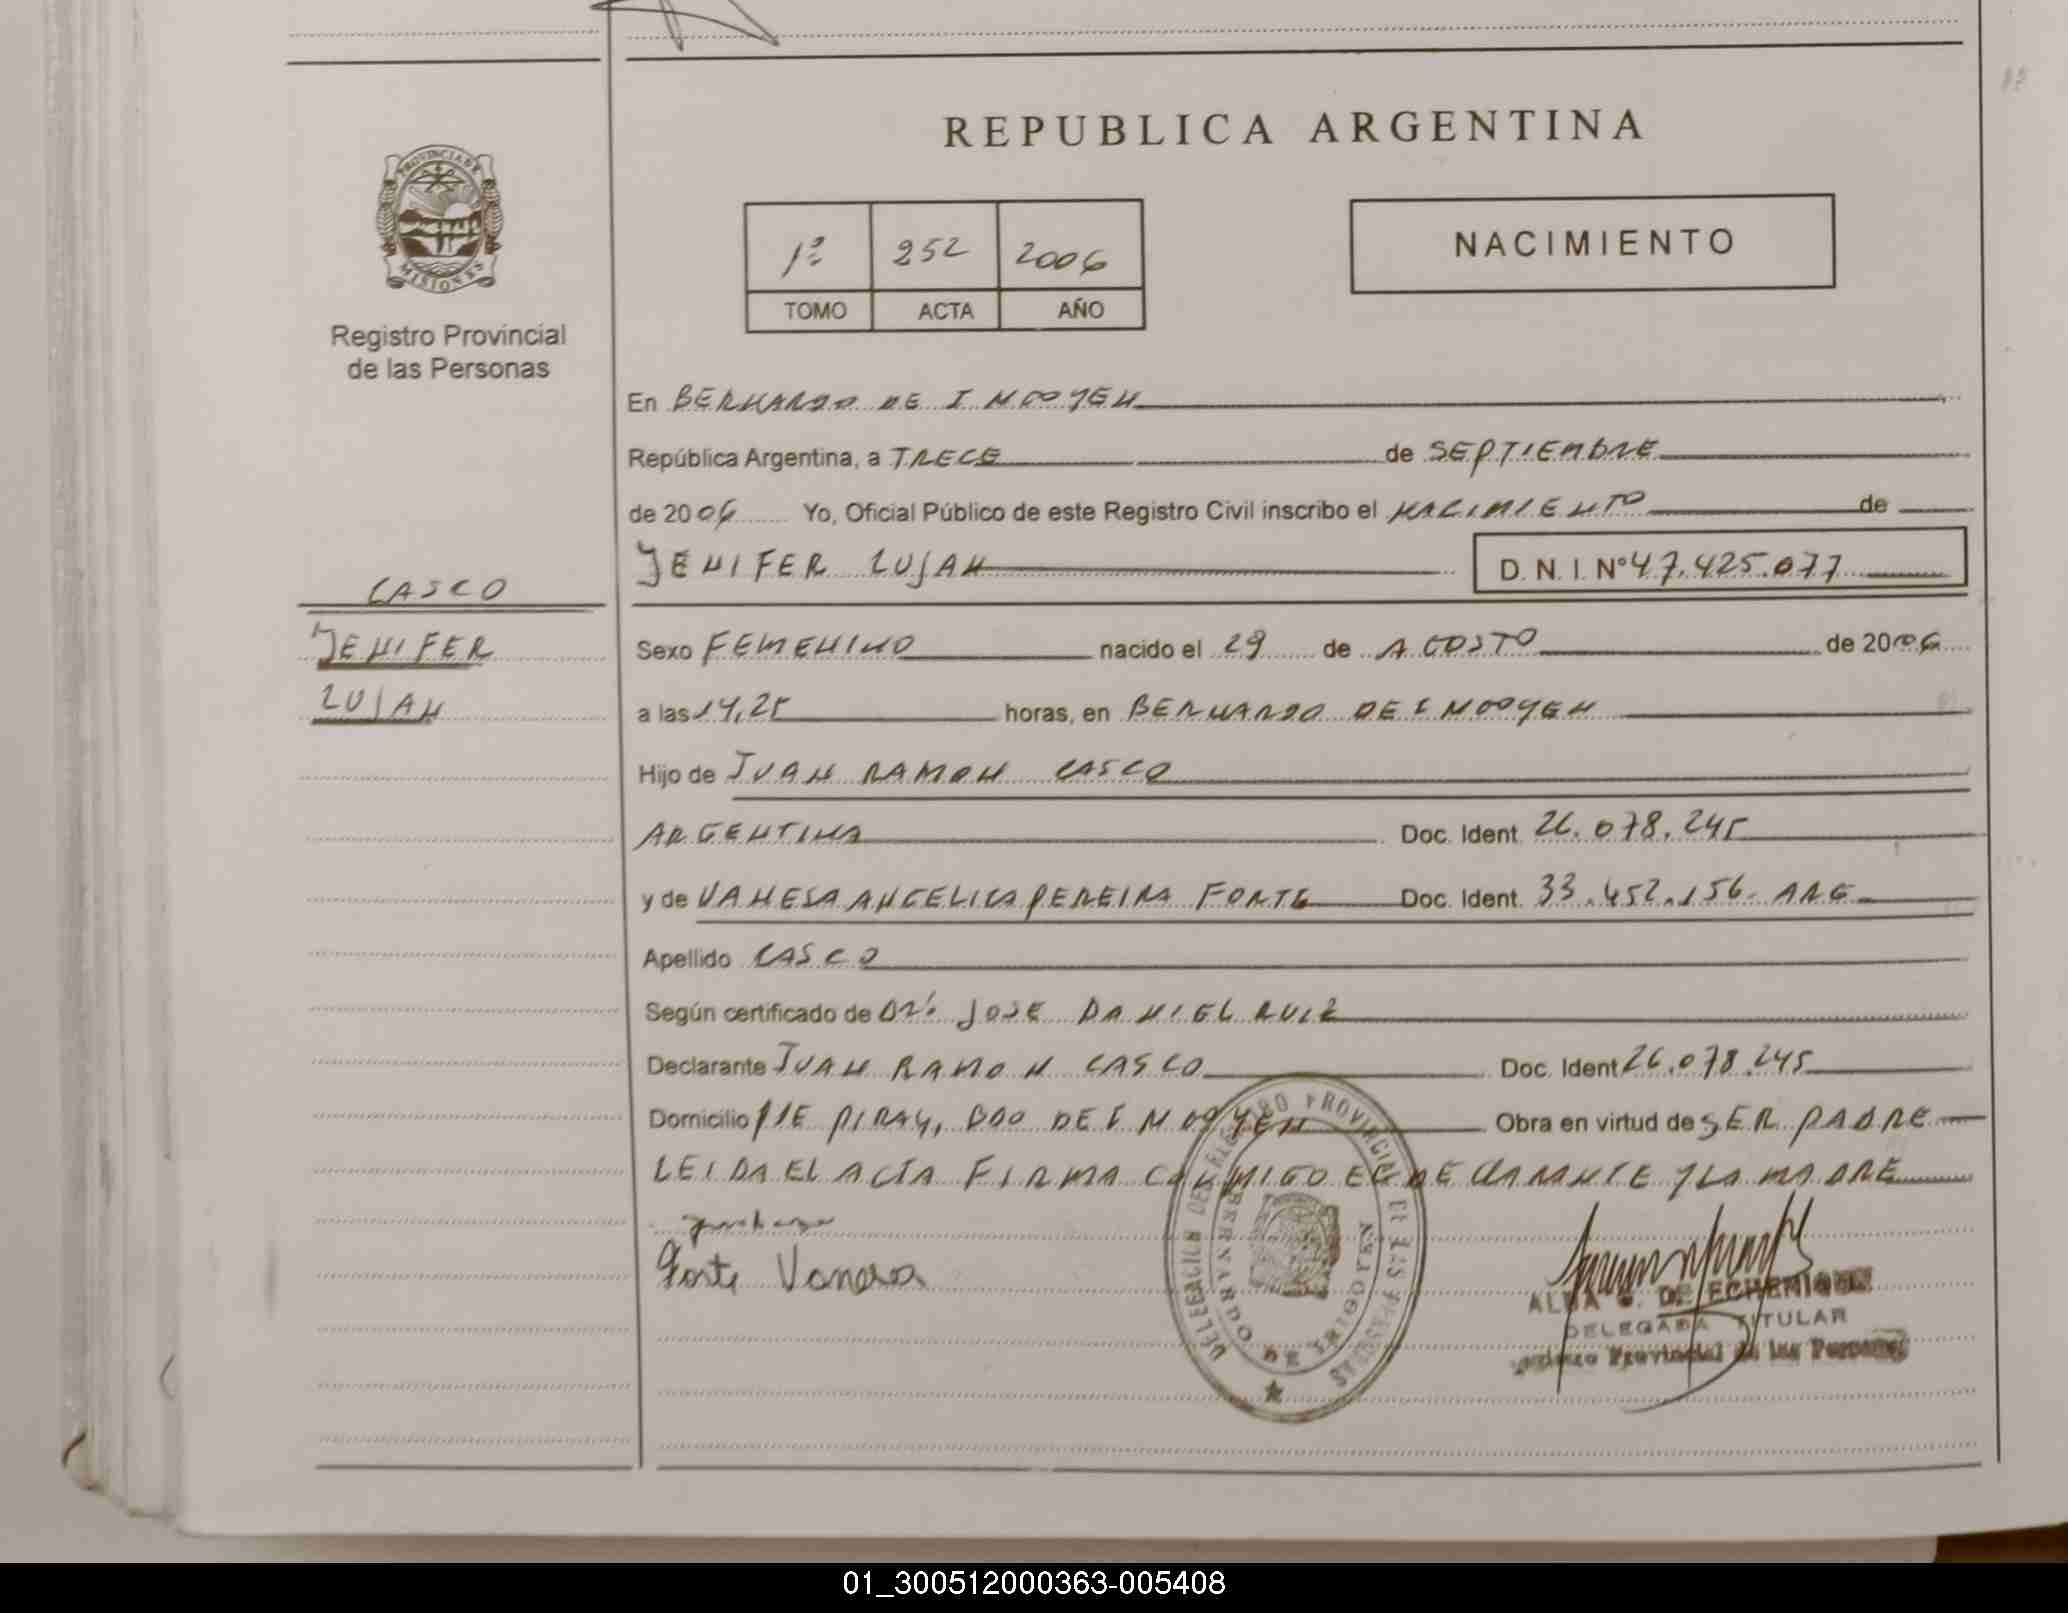 REPUBLICA ARGENTINA
PROVINCIA DE
MISIONES
Registro Provincial
de las Personas
1º 252 2006
TOMO ACTA AÑO
NACIMIENTO
En BERNARDO DE IRIGOYEN
República Argentina, a TRECE de SEPTIEMBRE
de 2006 Yo, Oficial Público de este Registro Civil inscribo el NACIMIENTO de
JENIFER LUJAN D. N. I. Nº 47.425.077
CASCO
JENIFER
LUJAN
Sexo FEMENINO nacido el 29 de AGOSTO de 2006
a las 14,25 horas, en BERNARDO DE IRIGOYEN
Hijo de JUAN RAMON CASCO
ARGENTINA Doc. Ident. 26.078.245
y de VANESA ANGELICA PEREIRA FORTE Doc. Ident. 33.452.156. ARG
Apellido CASCO
Según certificado de DR: JOSE DANIEL RUIZ
Declarante JUAN RAMON CASCO Doc. Ident 26.078.245
Domicilio PJE PIRAY, BDO DE IRIGOYEN Obra en virtud de SER PADRE
LEIDA EL ACTA FIRMA CONMIGO EL DECLARANTE Y LA MADRE
Forte Vanesa
DELEGACION DEL REGISTRO PROVINCIAL DE LAS PERSONAS
BERNARDO DE IRIGOYEN
ALBA G. DE ECHENIQUE
DELEGADA TITULAR
Registro Provincial de las Personas
01_300512000363-005408